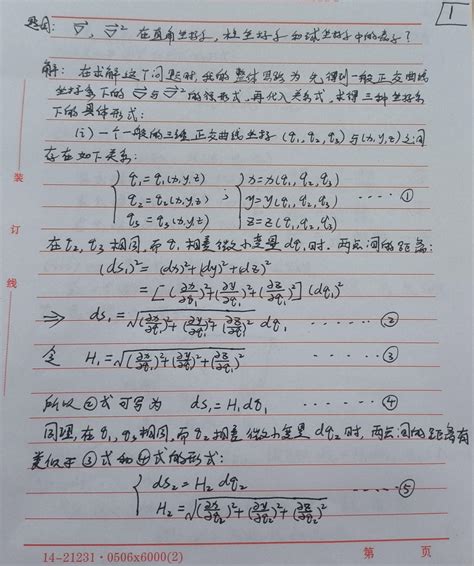 1
题目: ∇⃗, ∇⃗² 在直角坐标系, 柱坐标系和球坐标系中的表示?
解: 在求解这个问题时, 我的整体思路为先得到一般正交曲线
坐标系下的 ∇⃗ 与 ∇⃗² 的形式, 再代入关系式, 求得三种坐标系
下的具体形式:
(i) 一个一般的三维正交曲线坐标 (q₁, q₂, q₃) 与 (x, y, z) 之间
存在如下关系:
{ q₁ = q₁(x, y, z) ; { x = x(q₁, q₂, q₃)
装
q₂ = q₂(x, y, z) y = y(q₁, q₂, q₃) ······ ①
q₃ = q₃(x, y, z) z = z(q₁, q₂, q₃)
订
在 q₂, q₃ 相同, 而 q₁ 相差微小变量 dq₁ 时, 两点间的距离:
(ds₁)² = (dx)² + (dy)² + (dz)²
线
= [(∂x/∂q₁)² + (∂y/∂q₁)² + (∂z/∂q₁)²] (dq₁)²
⇒ ds₁ = √((∂x/∂q₁)² + (∂y/∂q₁)² + (∂z/∂q₁)²) dq₁ ······ ②
令 H₁ = √((∂x/∂q₁)² + (∂y/∂q₁)² + (∂z/∂q₁)²) ······ ③
所以②式可写为 ds₁ = H₁dq₁ ······ ④
同理, 在 q₁, q₃ 相同, 而 q₂ 相差微小变量 dq₂ 时, 两点间的距离有
类似于③式和④式的形式:
{ ds₂ = H₂ dq₂
H₂ = √((∂x/∂q₂)² + (∂y/∂q₂)² + (∂z/∂q₂)²) ······ ⑤
14-21231·0506x6000(2) 第 页